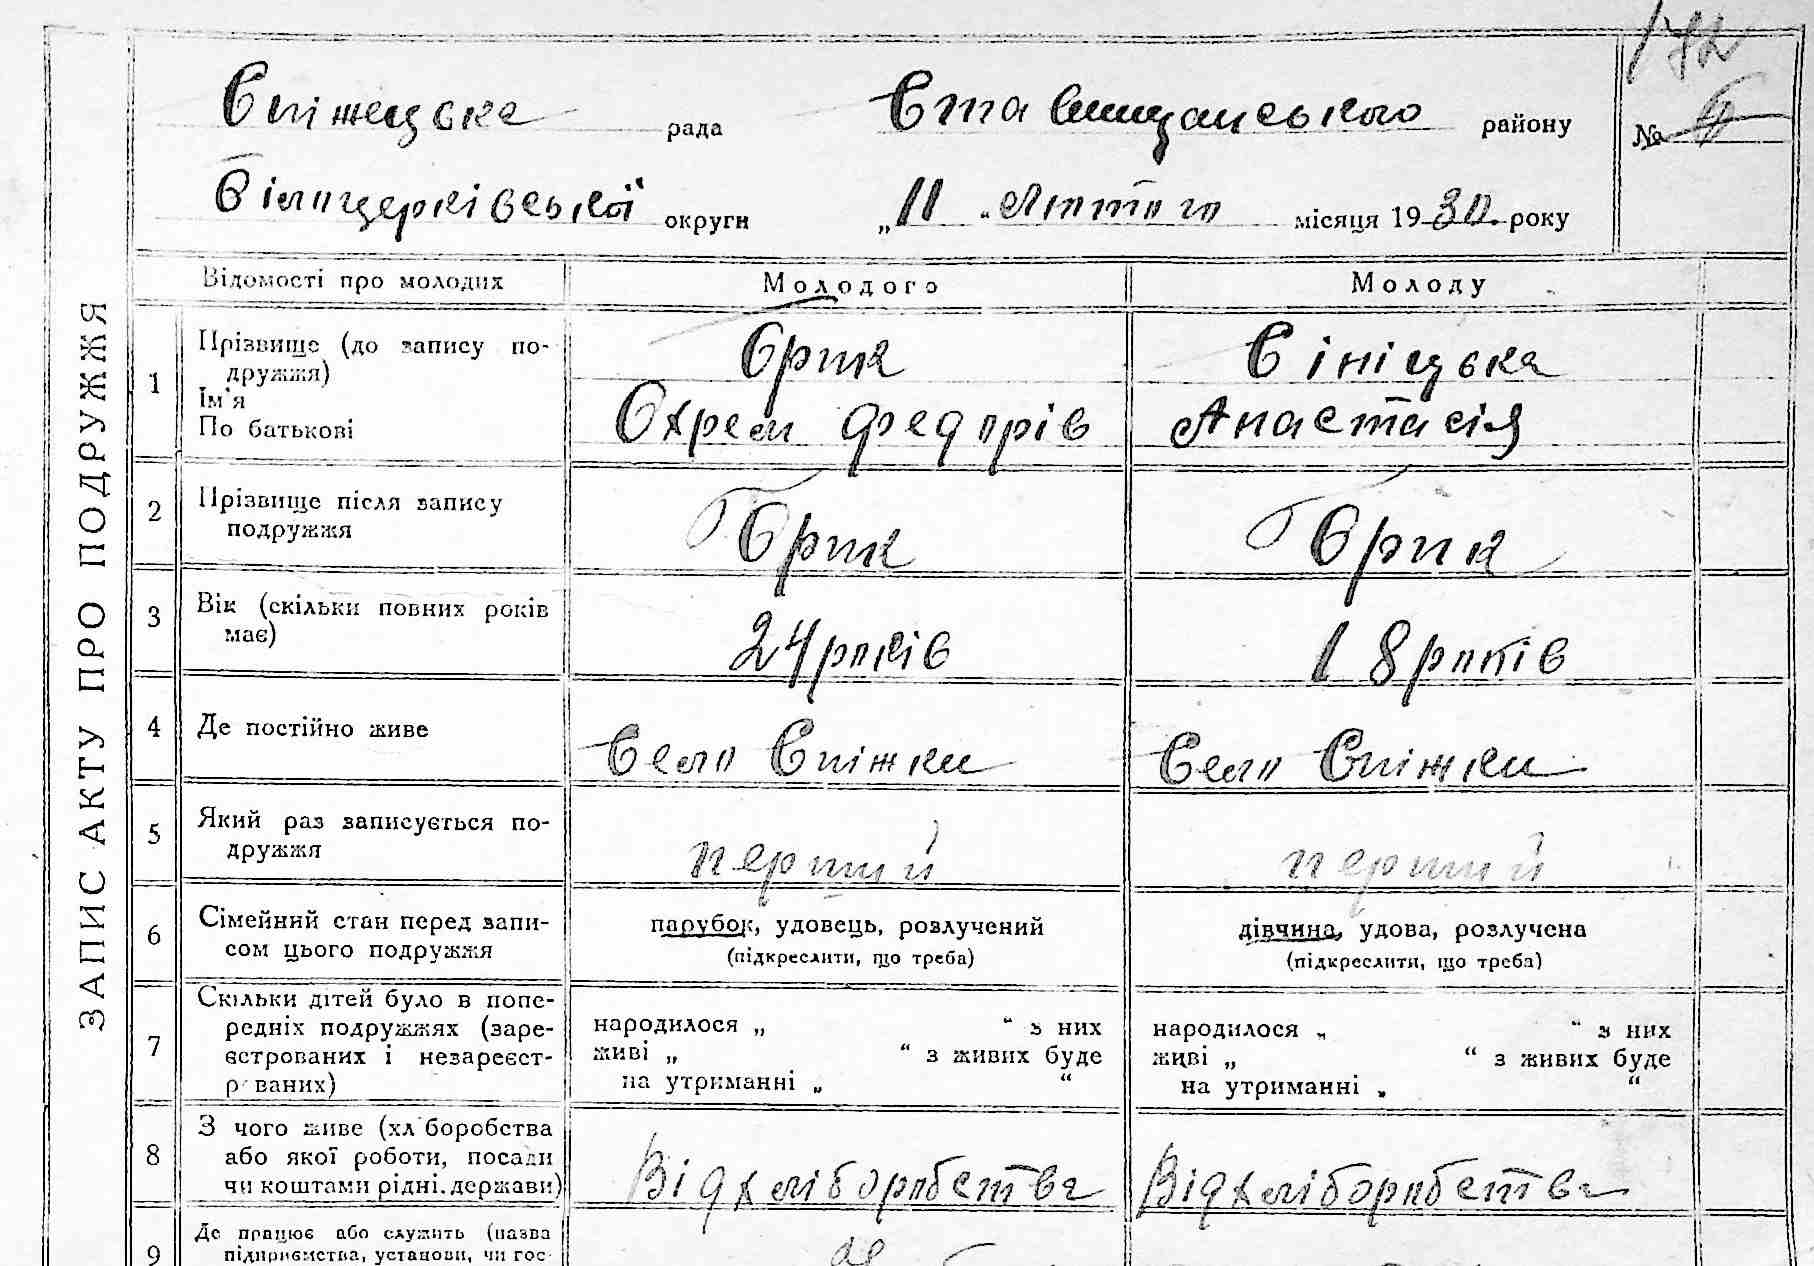 182
Єніжецька рада Ставищанського району № 4
Білоцерківської округи „11" Лютого місяця 1930 року
ЗАПИС АКТУ ПРО ПОДРУЖЖЯ
Відомості про молодих Молодого Молоду
1 Прізвище (до запису по-
дружжя)
Ім'я
По батькові
Брик
Охрем Федорів
Сініцька
Анастасія
2 Прізвище після запису
подружжя
Брик Брик
3 Вік (скільки повних років
має)
24 років 18 років
4 Де постійно живе Село Сніжки Село Сніжки
5 Який раз записується по-
дружжя
перший перший
6 Сімейний стан перед запи-
сом цього подружжя
парубок, удовець, розлучений
(підкреслити, що треба)
дівчина, удова, розлучена
(підкреслити, що треба)
7 Скільки дітей було в попе-
редніх подружжях (заре-
єстрованих і незареєст-
р ваних)
народилося „ “ з них
живі „ “ з живих буде
на утриманні „ “
народилося „ “ з них
живі „ “ з живих буде
на утриманні „ “
8 З чого живе (хл боробства
або якої роботи, посади
чи коштами рідні. держави)
Від хліборобства Від хліборобства
9 Де працює або служить (назва
підприємства, установи, чи гос-